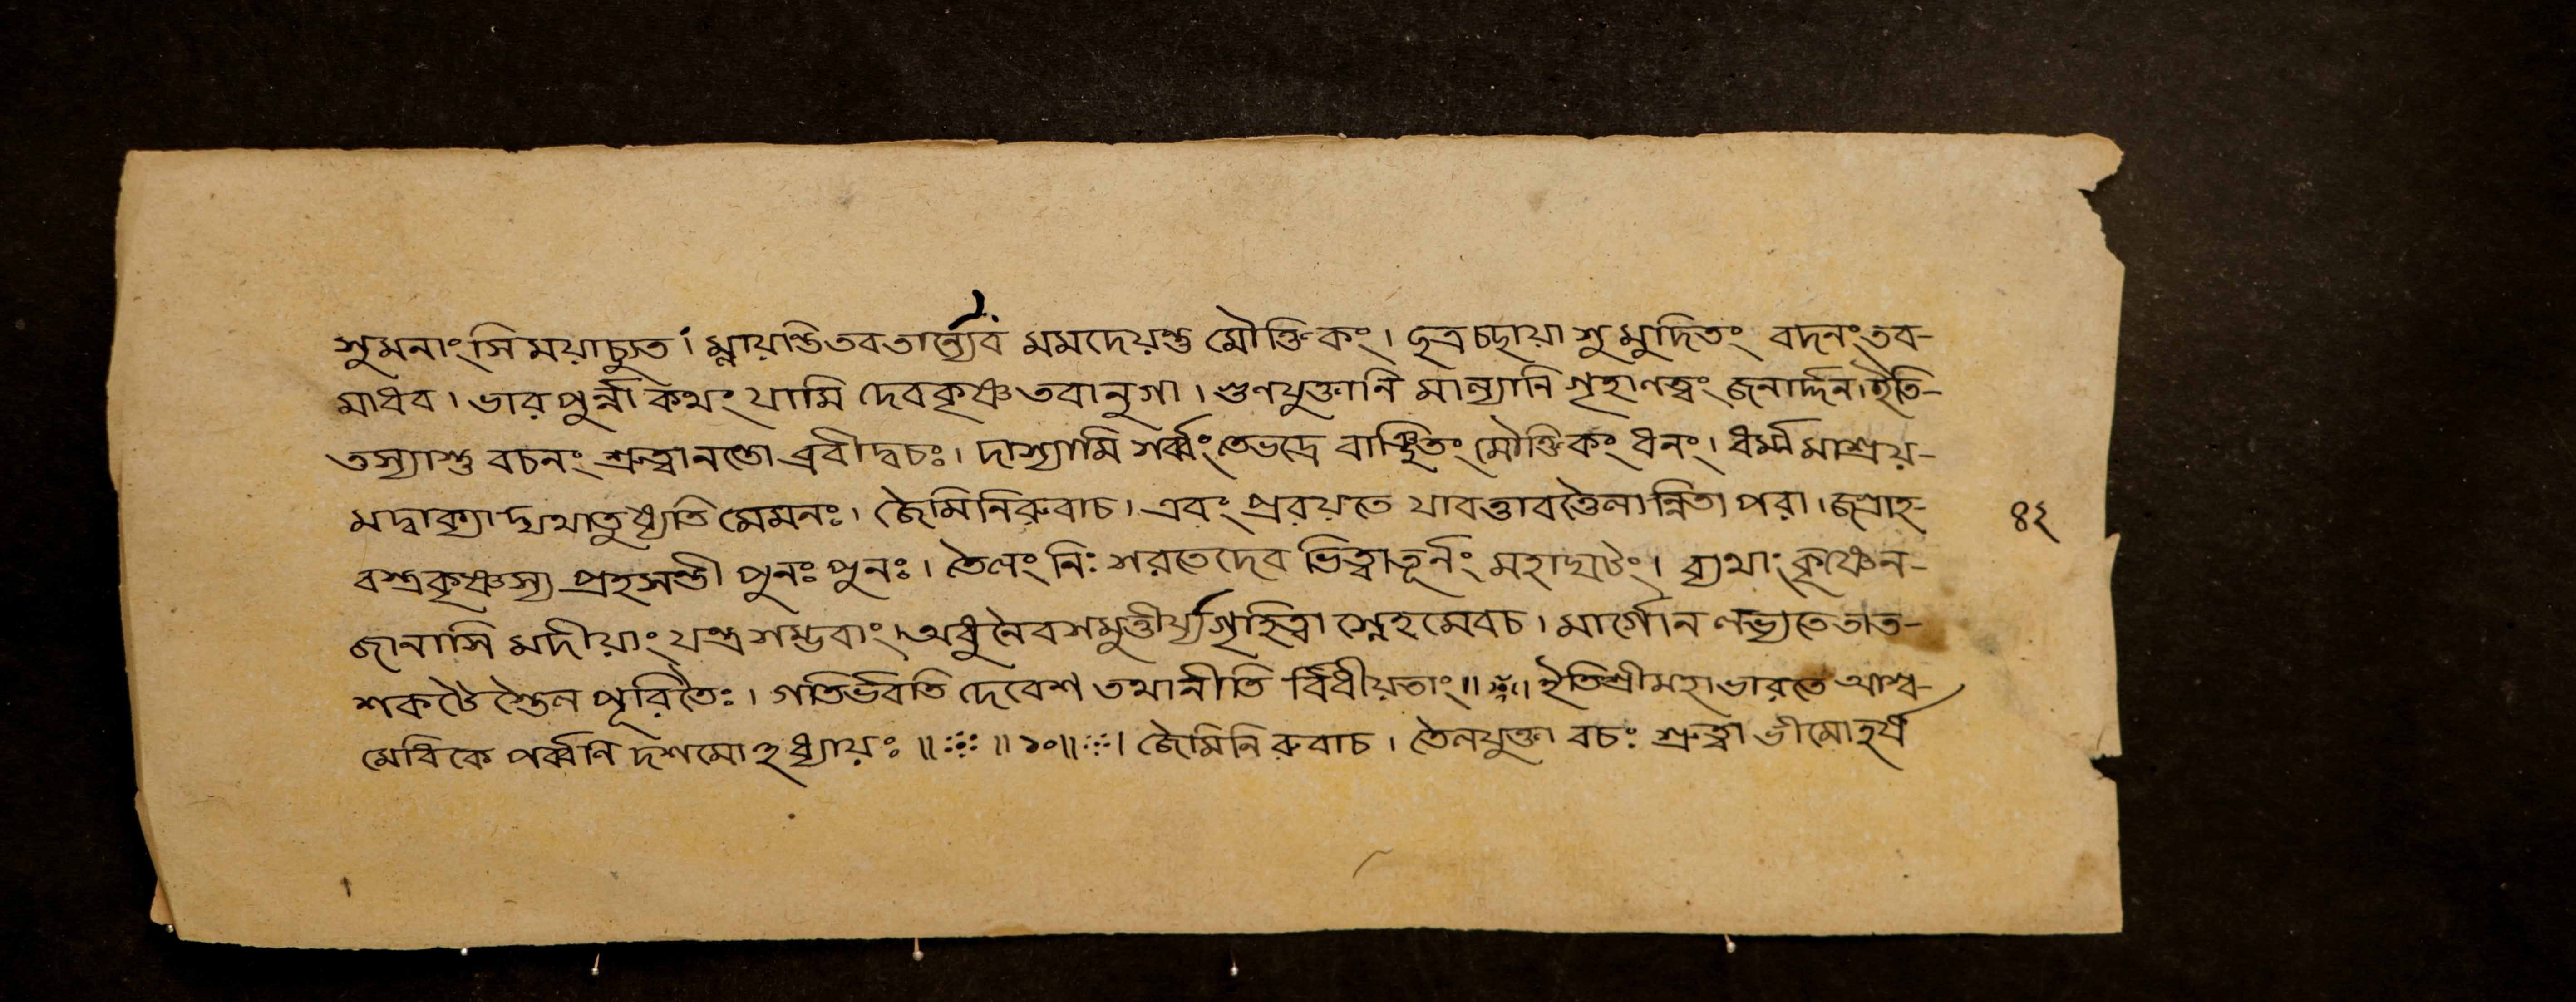 সুমনাংসি ময়াচ্যুত । ম্লায়ন্তি তব তান্যেব মমদেয়ন্তু মৌক্তিকং। ছত্রচছায়া শু মুদিতং বদনং তব-
মাধব। ভার পুর্ন্না কথং যামি দেবকৃষ্ণ তবানুগা। গুণযুক্তানি মান্যানি গৃহাণত্বং জনার্দ্দন। ইতি-
তস্যাশু বচনং শ্রুত্বানন্তো ব্রবীদ্বচঃ। দাস্যামি শর্ব্বং তেভদ্রে বাঞ্ছিতং মৌক্তিকং ধনং। ধর্ম্মমাশ্রয়-
মদ্বাক্যাদ্যথাতুষ্যতি মেমনঃ। জৈমিনিরুবাচ। এবং প্ররয়তে যাবত্তাবত্তৈলান্নিতা পরা। জগ্রাহ-
বস্ত্রকৃষ্ণস্য প্রহসন্তী পুনঃ পুনঃ। তৈলং নিঃ শরতেদেব ভিত্বাতূর্নং মহাঘটং। ব্যথাং কৃষ্ণন-
জানাসি মদীয়াং যন্ত্রশম্ভবাং। অধুনৈবশমুত্তীর্য্য গৃহিত্বা স্নেহমেবচ। মার্গোন লভ্যতে তাত-
শকটৈ স্তৈল পূরিতৈঃ। গতির্ভবতি দেবেশ তথানীতি র্বিধীয়তাং॥ ইতিশ্রীমহাভারতে আশ্ব-
মেধিকে পর্ব্বনি দশমোহধ্যায়ঃ॥ ॥১০॥ । জৈমিনি রুবাচ। তৈলযুক্তা বচঃ শ্রুত্বা ভীমোহর্ষ
৪২